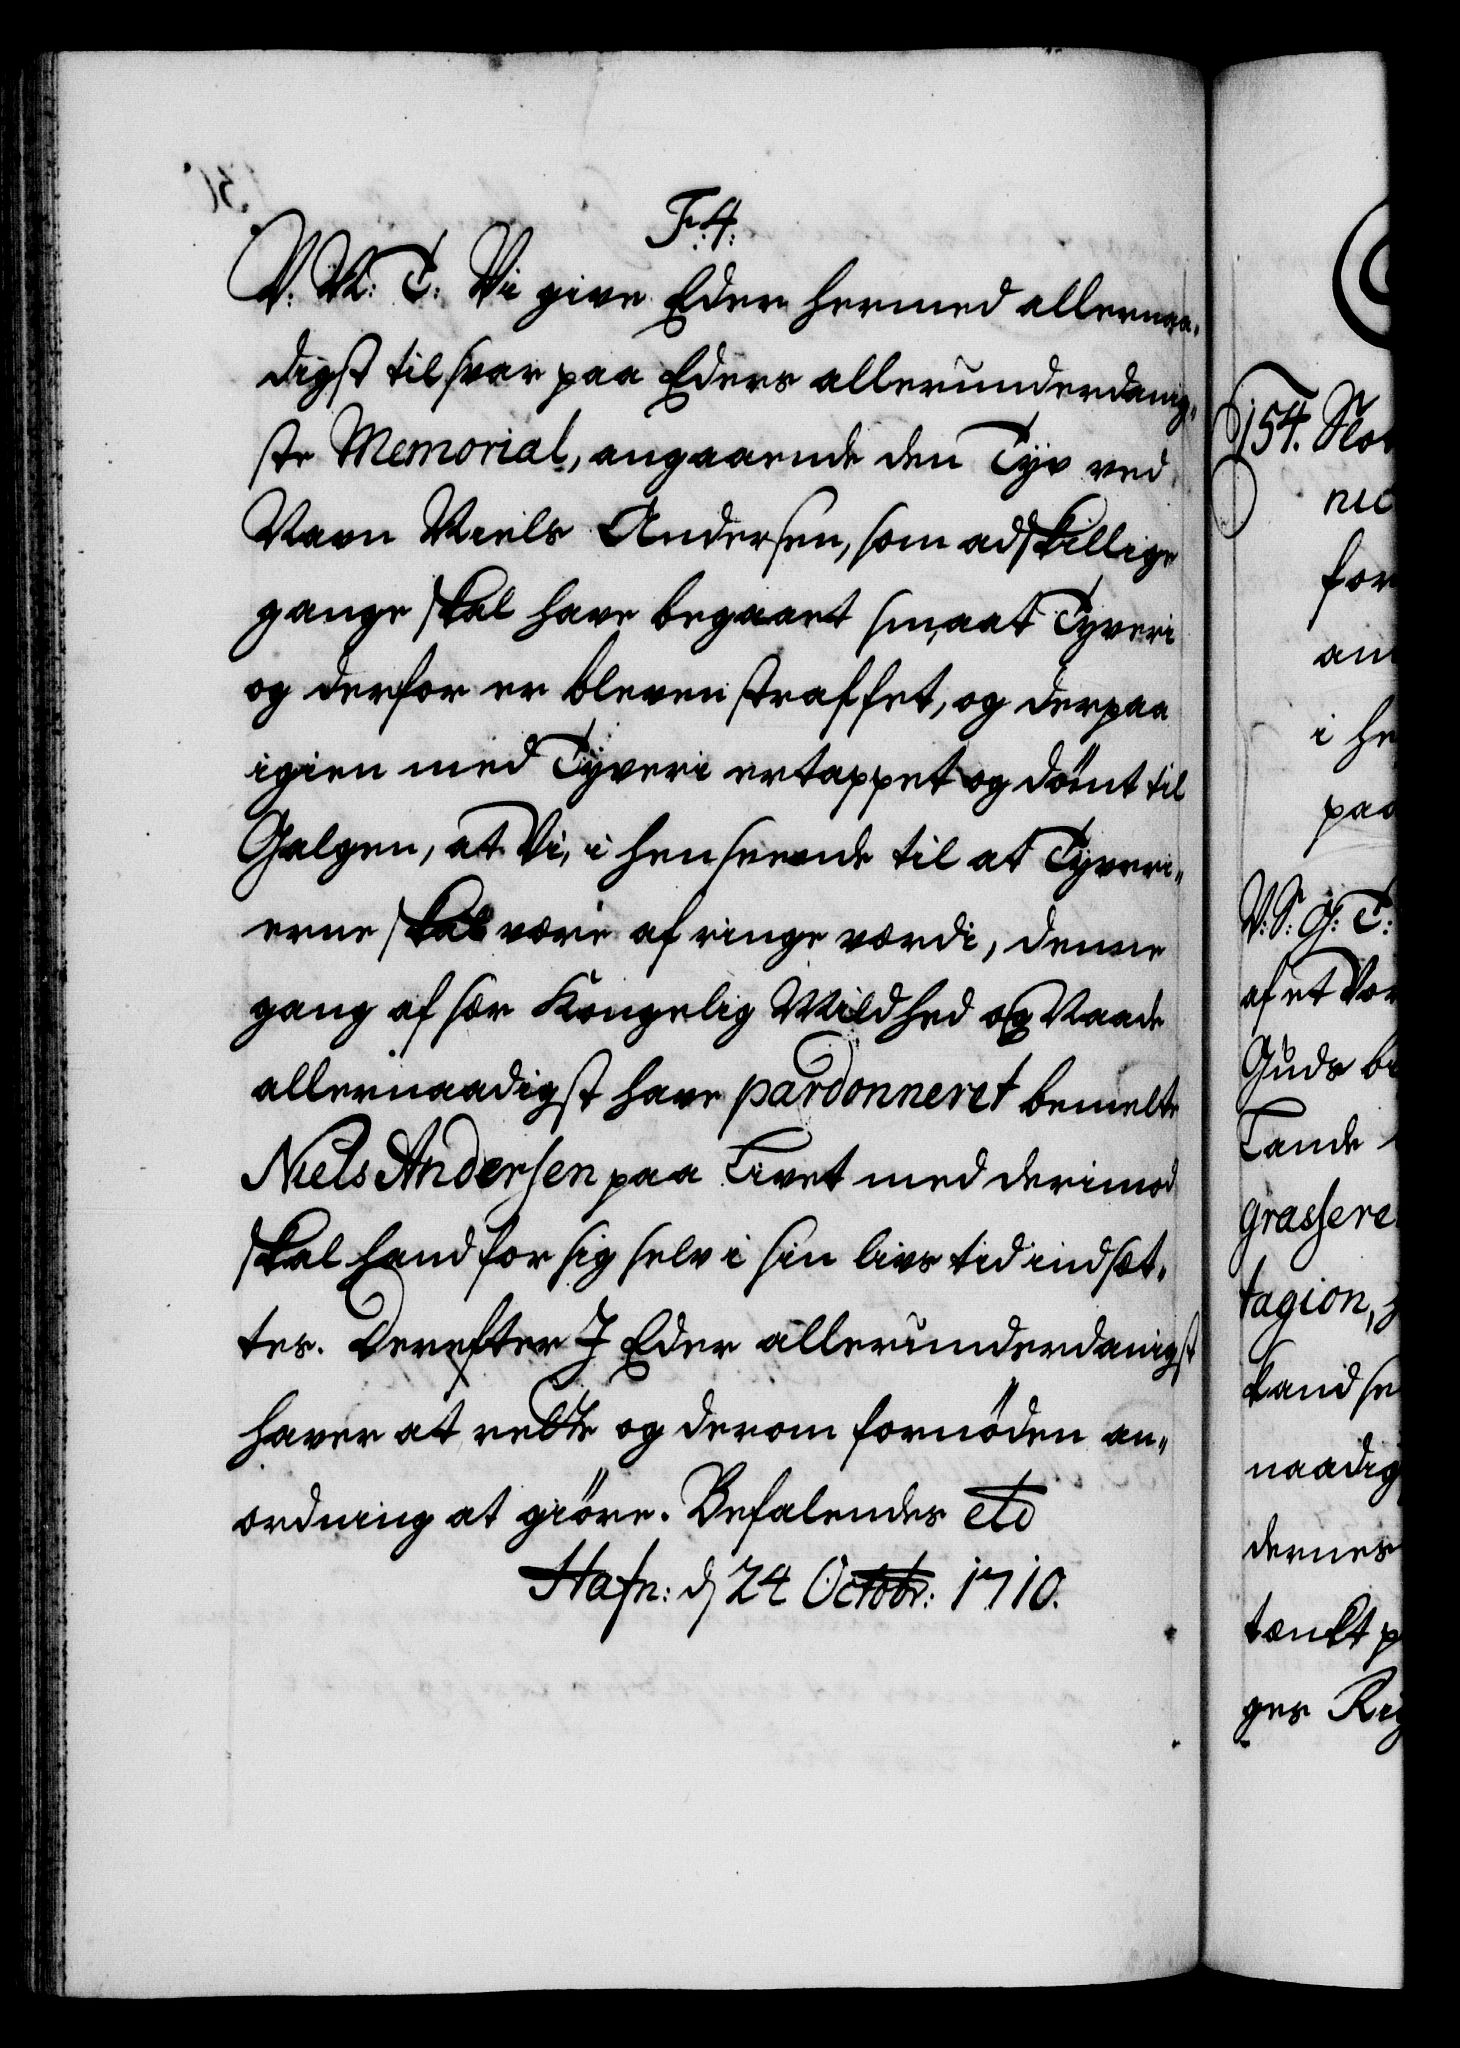 F. 4.
V. N. T. Vi give Eder hermed allernaa-
digst til svar paa Eders allerunderdanig-
ste Memorial, angaaende den Tyv ved
Navn Niels Andersen, som adskillige
gange skal have begaaet smaat Tyveri
og derfor er bleven straffet, og derpaa
igien med Tyveri ertappet og dömt til
Galgen, at Vi, i henseende til at Tyveri-
erne skal være af ringe værdi, denne
gang af sær Kongelig Mildhed og Naade
allernaadigst have pardonneret bemelte
Niels Andersen paa Livet med derimod
skal hand for sig selv i sin livs tid indsæt-
tes. Derefter I Eder allerunderdanigst
haver at rette og derom fornöden an-
ordning at giöre. Befalendes etc
Hafn: d 24 Octobr: 1710.
154. Slo
nic
for
an
i he
paa
V. S. G. T:
af et Vor
Guds be
Lande
grassere
tagion,
kand se
naadig
dernes
tænkt p
ges Rig